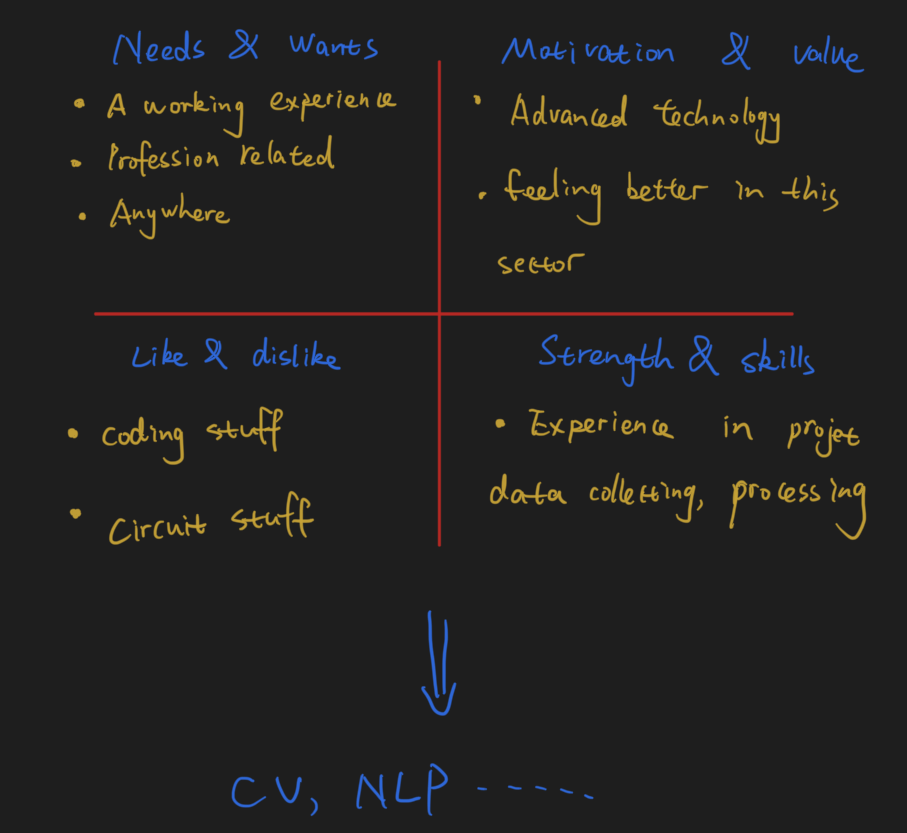 Needs & Wants
• A working experience
• Profession related
• Anywhere
Motivation & value
• Advanced technology
• feeling better in this
sector
Like & dislike
• coding stuff
• Circuit stuff
Strength & skills
• Experience in projet
data colletting, processing
CV, NLP ------